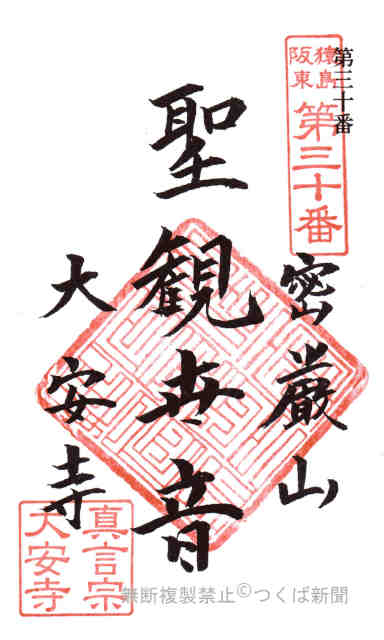 第三十番
猿島
阪東
第三十番
密厳山
聖観世音
大安寺
真言宗
大安寺
無断複製禁止©つくば新聞